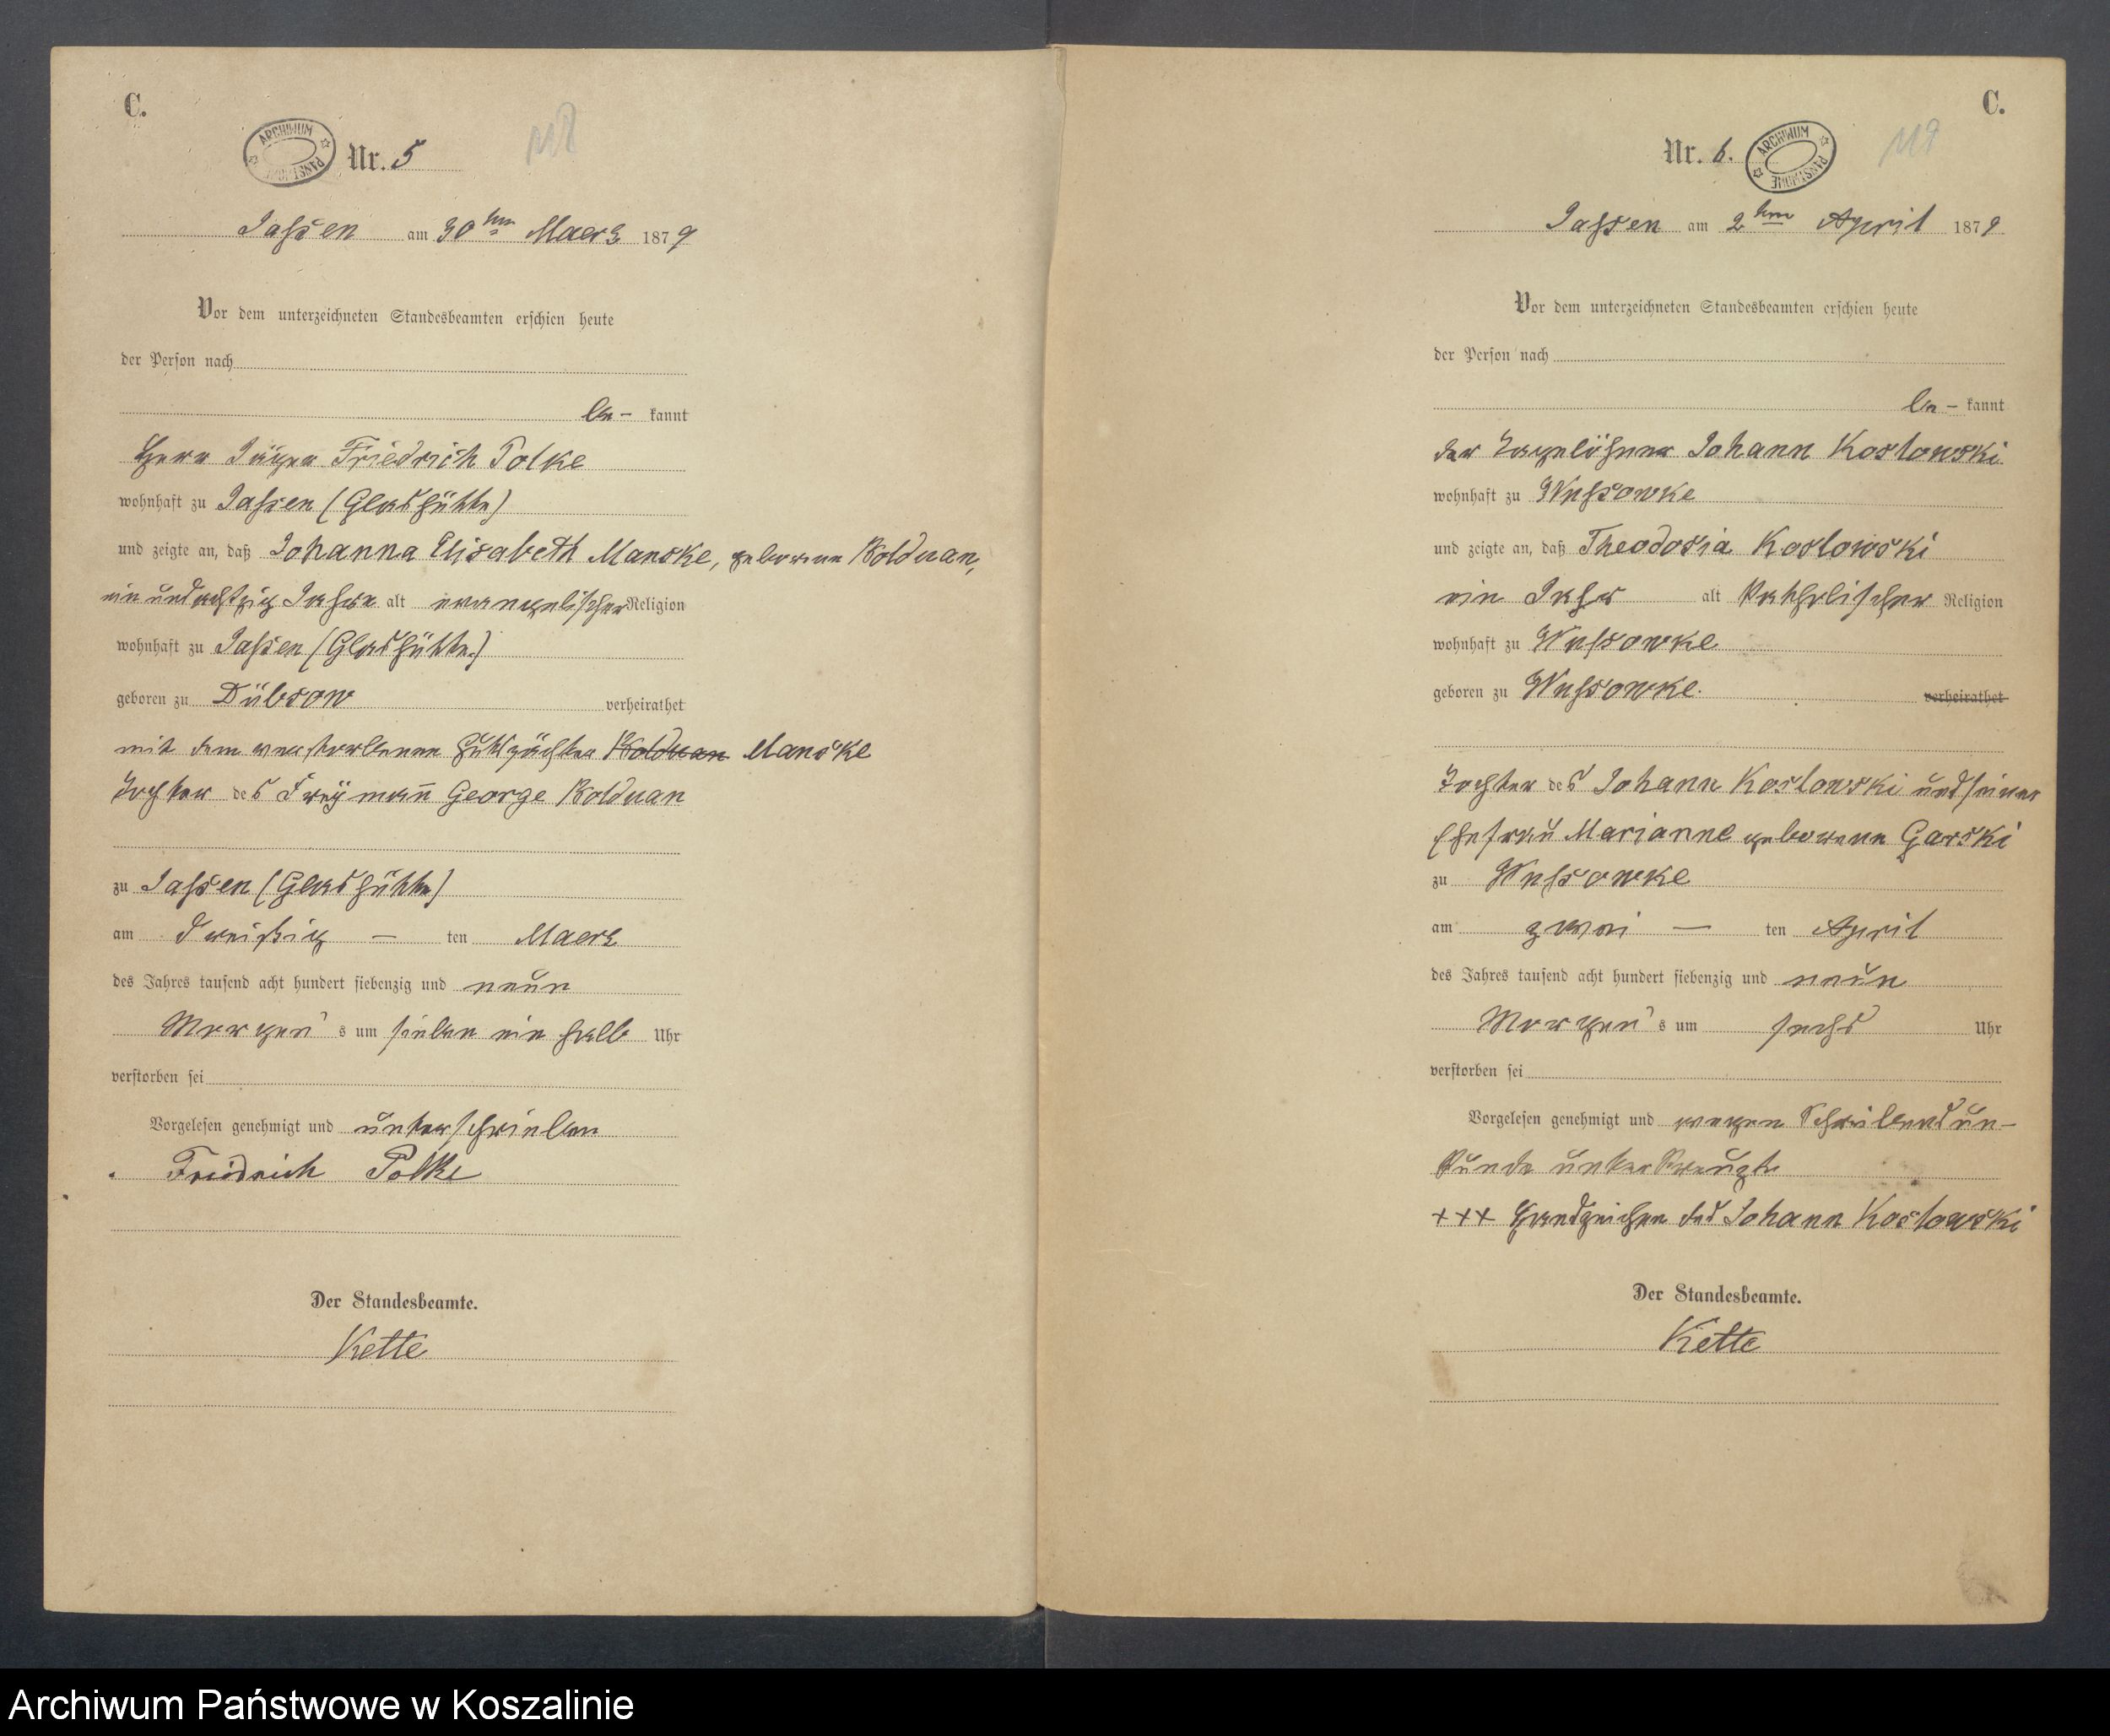 C.
ARCHIWUM PAŃSTWOWE
Nr. 5
118
Jassen am 30ten Maerz 1879
Vor dem unterzeichneten Standesbeamten erschien heute
der Person nach
be- kannt
Herr Jäger Friedrich Polke
wohnhaft zu Jassen (Glashütte)
und zeigte an, daß Johanna Elisabeth Manske, geborene Kolduan,
ein und achtzig Jahre alt evangelischer Religion
wohnhaft zu Jassen (Glashütte)
geboren zu Dübsow verheirathet
mit dem verstorbenen Gutspächter Kolduan Manske
Tochter des Freymann George Kolduan
zu Jassen (Glashütte)
am dreißig — ten Maerz
des Jahres tausend acht hundert siebenzig und neun
Morgen's um sieben ein halb Uhr
verstorben sei
Vorgelesen genehmigt und unterschrieben
Friedrich Polke
Der Standesbeamte.
Kette
C.
Nr. 6.
ARCHIWUM PAŃSTWOWE
119
Jassen am 2ten April 1879
Vor dem unterzeichneten Standesbeamten erschien heute
der Person nach
be- kannt
der Tagelöhner Johann Koslowski
wohnhaft zu Wussowke
und zeigte an, daß Theodosia Koslowski
ein Jahr alt katholischer Religion
wohnhaft zu Wussowke
geboren zu Wussowke. verheirathet
Tochter des Johann Koslowski und seiner
Ehefrau Marianne geborene Garski
zu Wussowke
am zwei — ten April
des Jahres tausend acht hundert siebenzig und neun
Morgen's um sechs Uhr
verstorben sei
Vorgelesen genehmigt und wegen Schreibensun-
kunde unterkreuzt
+++ Handzeichen des Johann Koslowski
Der Standesbeamte.
Kette
Archiwum Państwowe w Koszalinie